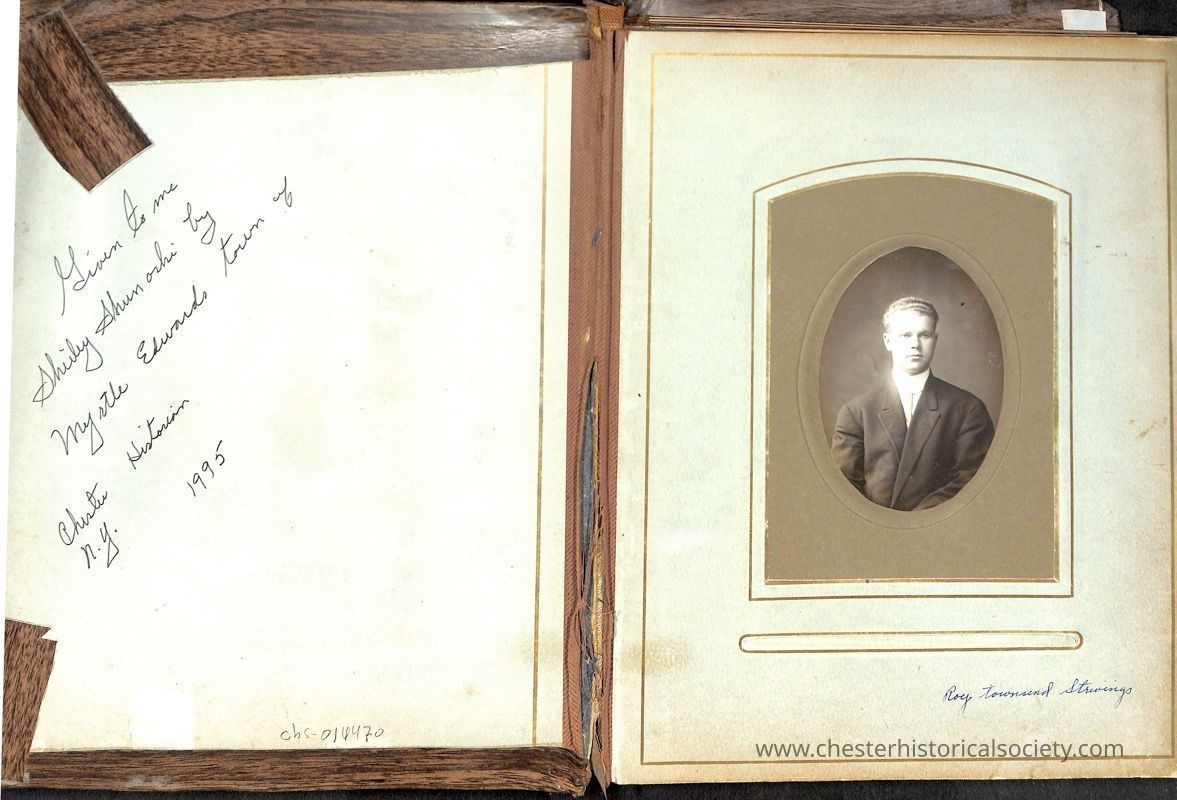 Given to me
Shirley by
Myrtle Edwards town of
Chester Historian
N.Y. 1995
chs-014470
Roy Townsend Strivings
www.chesterhistoricalsociety.com